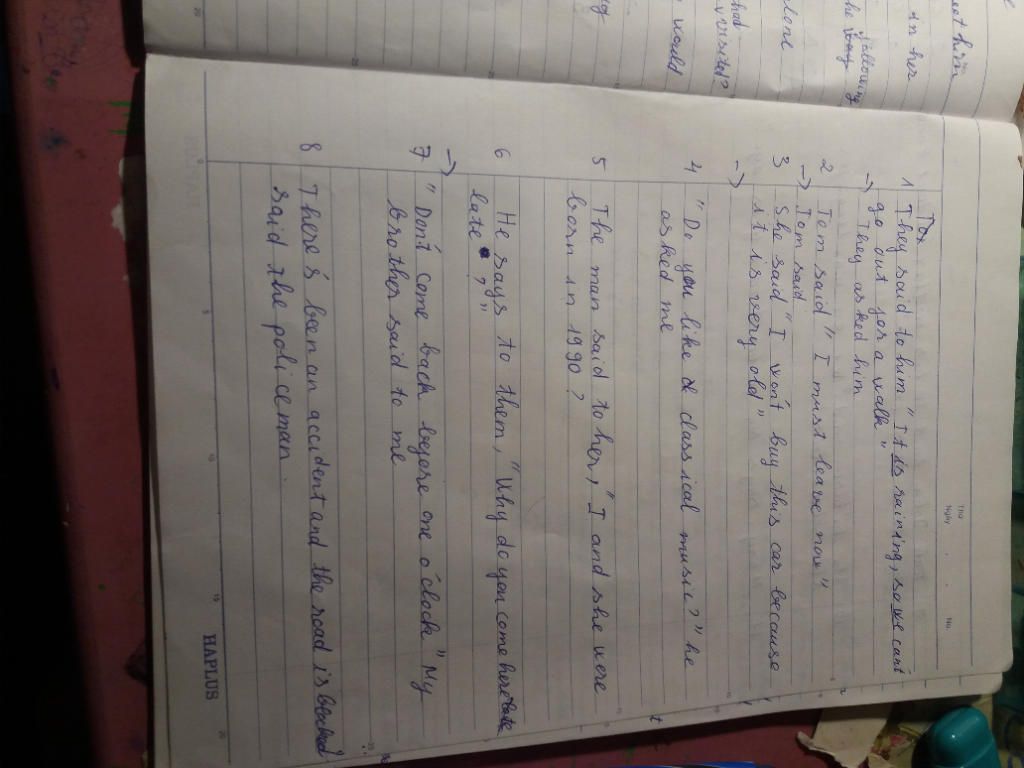 eet him
in her
following
the boy
alone
had
visited?
would
Thứ
Ngày
No.
1 They said to him "It is raining, so we can't
go out for a walk"
-> They asked him
2 Tom said " I must leave now"
-> Tom said
3 She said "I won't buy this car because
it is very old"
->
4 "Do you like classical music?" he
asked me
5 The man said to her, "I and she were
born in 1990?
6 He says to them, "Why do you come here late
late ?"
->
7 "Don't come back before one o'clock" My
brother said to me
8 There's been an accident and the road is blocked
said the policeman.
0 5 10 15 20
HAPLUS